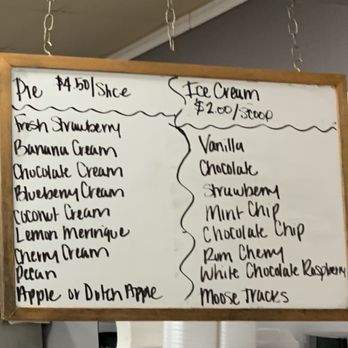 Pie $4.50/Slice
Fresh Strawberry
Banana Cream
Chocolate Cream
Blueberry Cream
Coconut Cream
Lemon Meringue
Cherry Cream
Pecan
Apple or Dutch Apple
Ice Cream
$2.00/scoop
Vanilla
Chocolate
Strawberry
Mint Chip
Chocolate Chip
Rum Cherry
White Chocolate Raspberry
Moose Tracks